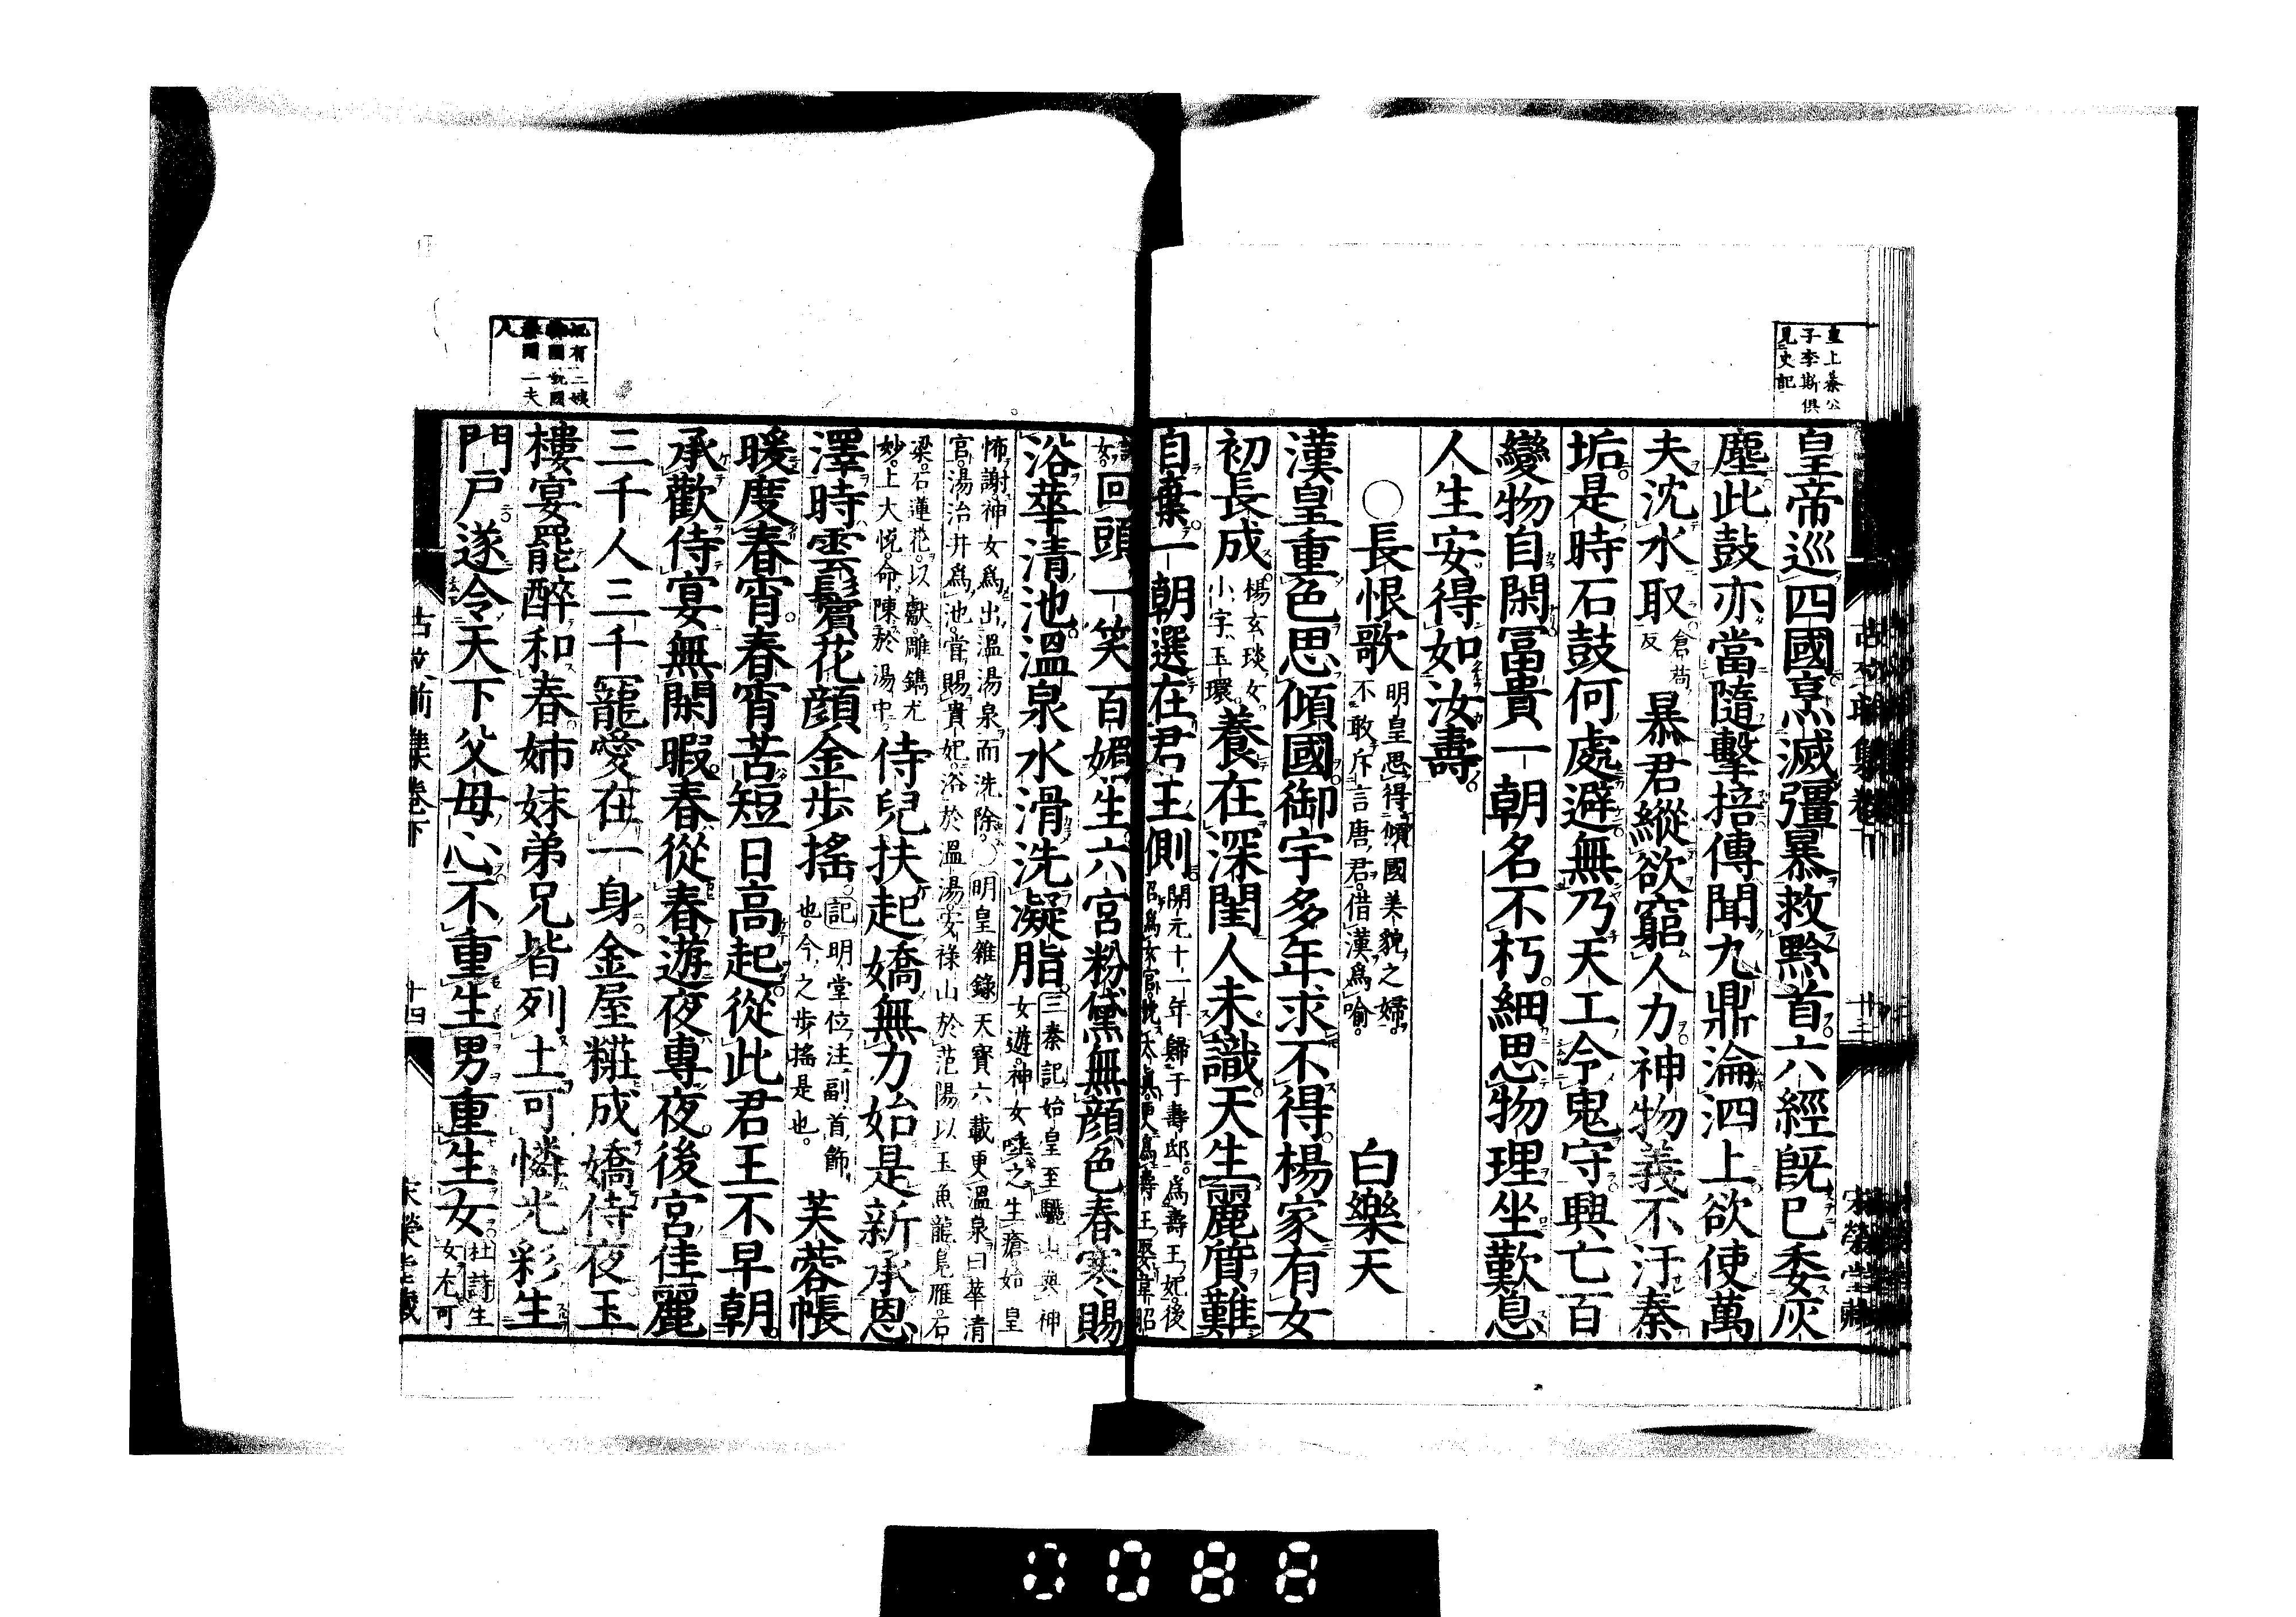 皇上蔡公
子李斯俱
見史記
皇帝巡四國烹滅彊暴救黔首六經旣已委灰
塵此鼓亦當隨擊掊傳聞九鼎淪泗上欲使萬
夫沈水取
倉苟
反
暴君縱欲窮人力神物義不汙秦
垢是時石鼓何處避無乃天工令鬼守興亡百
變物自閑冨貴一朝名不朽細思物理坐歎息
人生安得如汝壽
○長恨歌
明皇思得傾國美貌之婦
不敢斥言唐君借漢爲喻
白樂天
漢皇重色思傾國御宇多年求不得楊家有女
初長成
楊玄琰女
小字玉環
養在深閨人未識天生麗質難
自棄一朝選在君王側
開元十一年歸于壽邸爲壽王妃後
回頭一笑百媚生六宮粉黛無顔色春寒賜
浴華清池溫泉水滑洗凝脂
三秦記始皇至驪山與神
女遊神女唾之生瘡始皇
怖謝神女爲出溫湯泉而洗除○明皇雜錄天寶六載更溫泉曰華清
宮湯治井爲池嘗賜貴妃浴於溫湯安祿山於范陽以玉魚龍鳧雁石
梁石蓮花以獻雕鐫尤
妙上大悅命陳於湯中
侍兒扶起嬌無力始是新承恩
澤時雲鬢花顔金步搖
記明堂位注副首飾
也今之步搖是也
芙蓉帳
暖度春宵春宵苦短日高起從此君王不早朝
承歡侍宴無閑暇春從春遊夜專夜後宮佳麗
三千人三千寵愛在一身金屋糚成嬌侍夜玉
樓宴罷醉和春姉妹弟兄皆列土可憐光彩生
門戸遂令天下父母心不重生男重生女
杜詩生
女尤可
古文前集卷下
十四